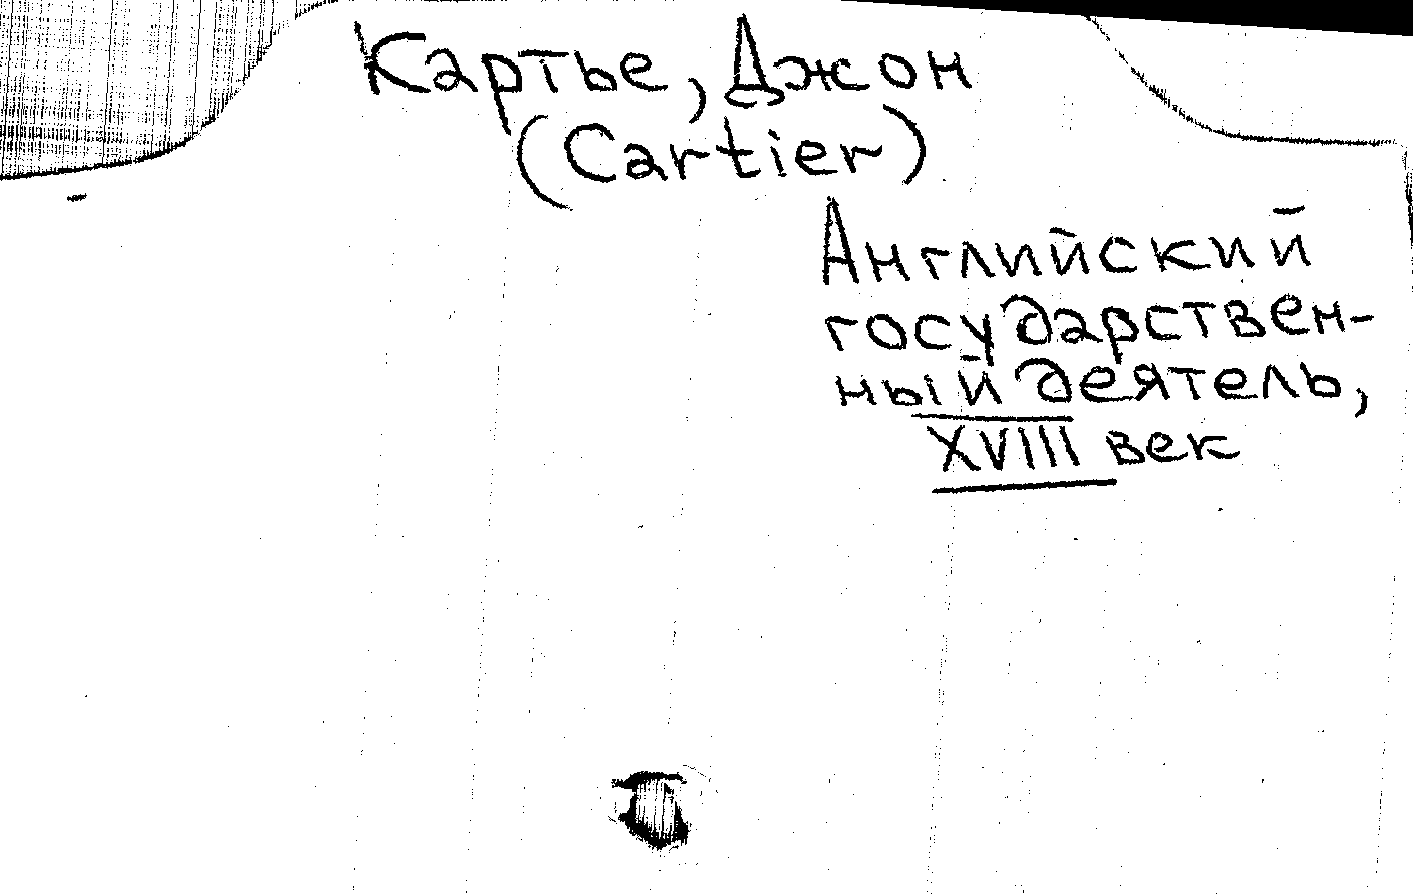 Картье, Джон
(Cartier)
Английский
государствен-
ный деятель,
XVIII век